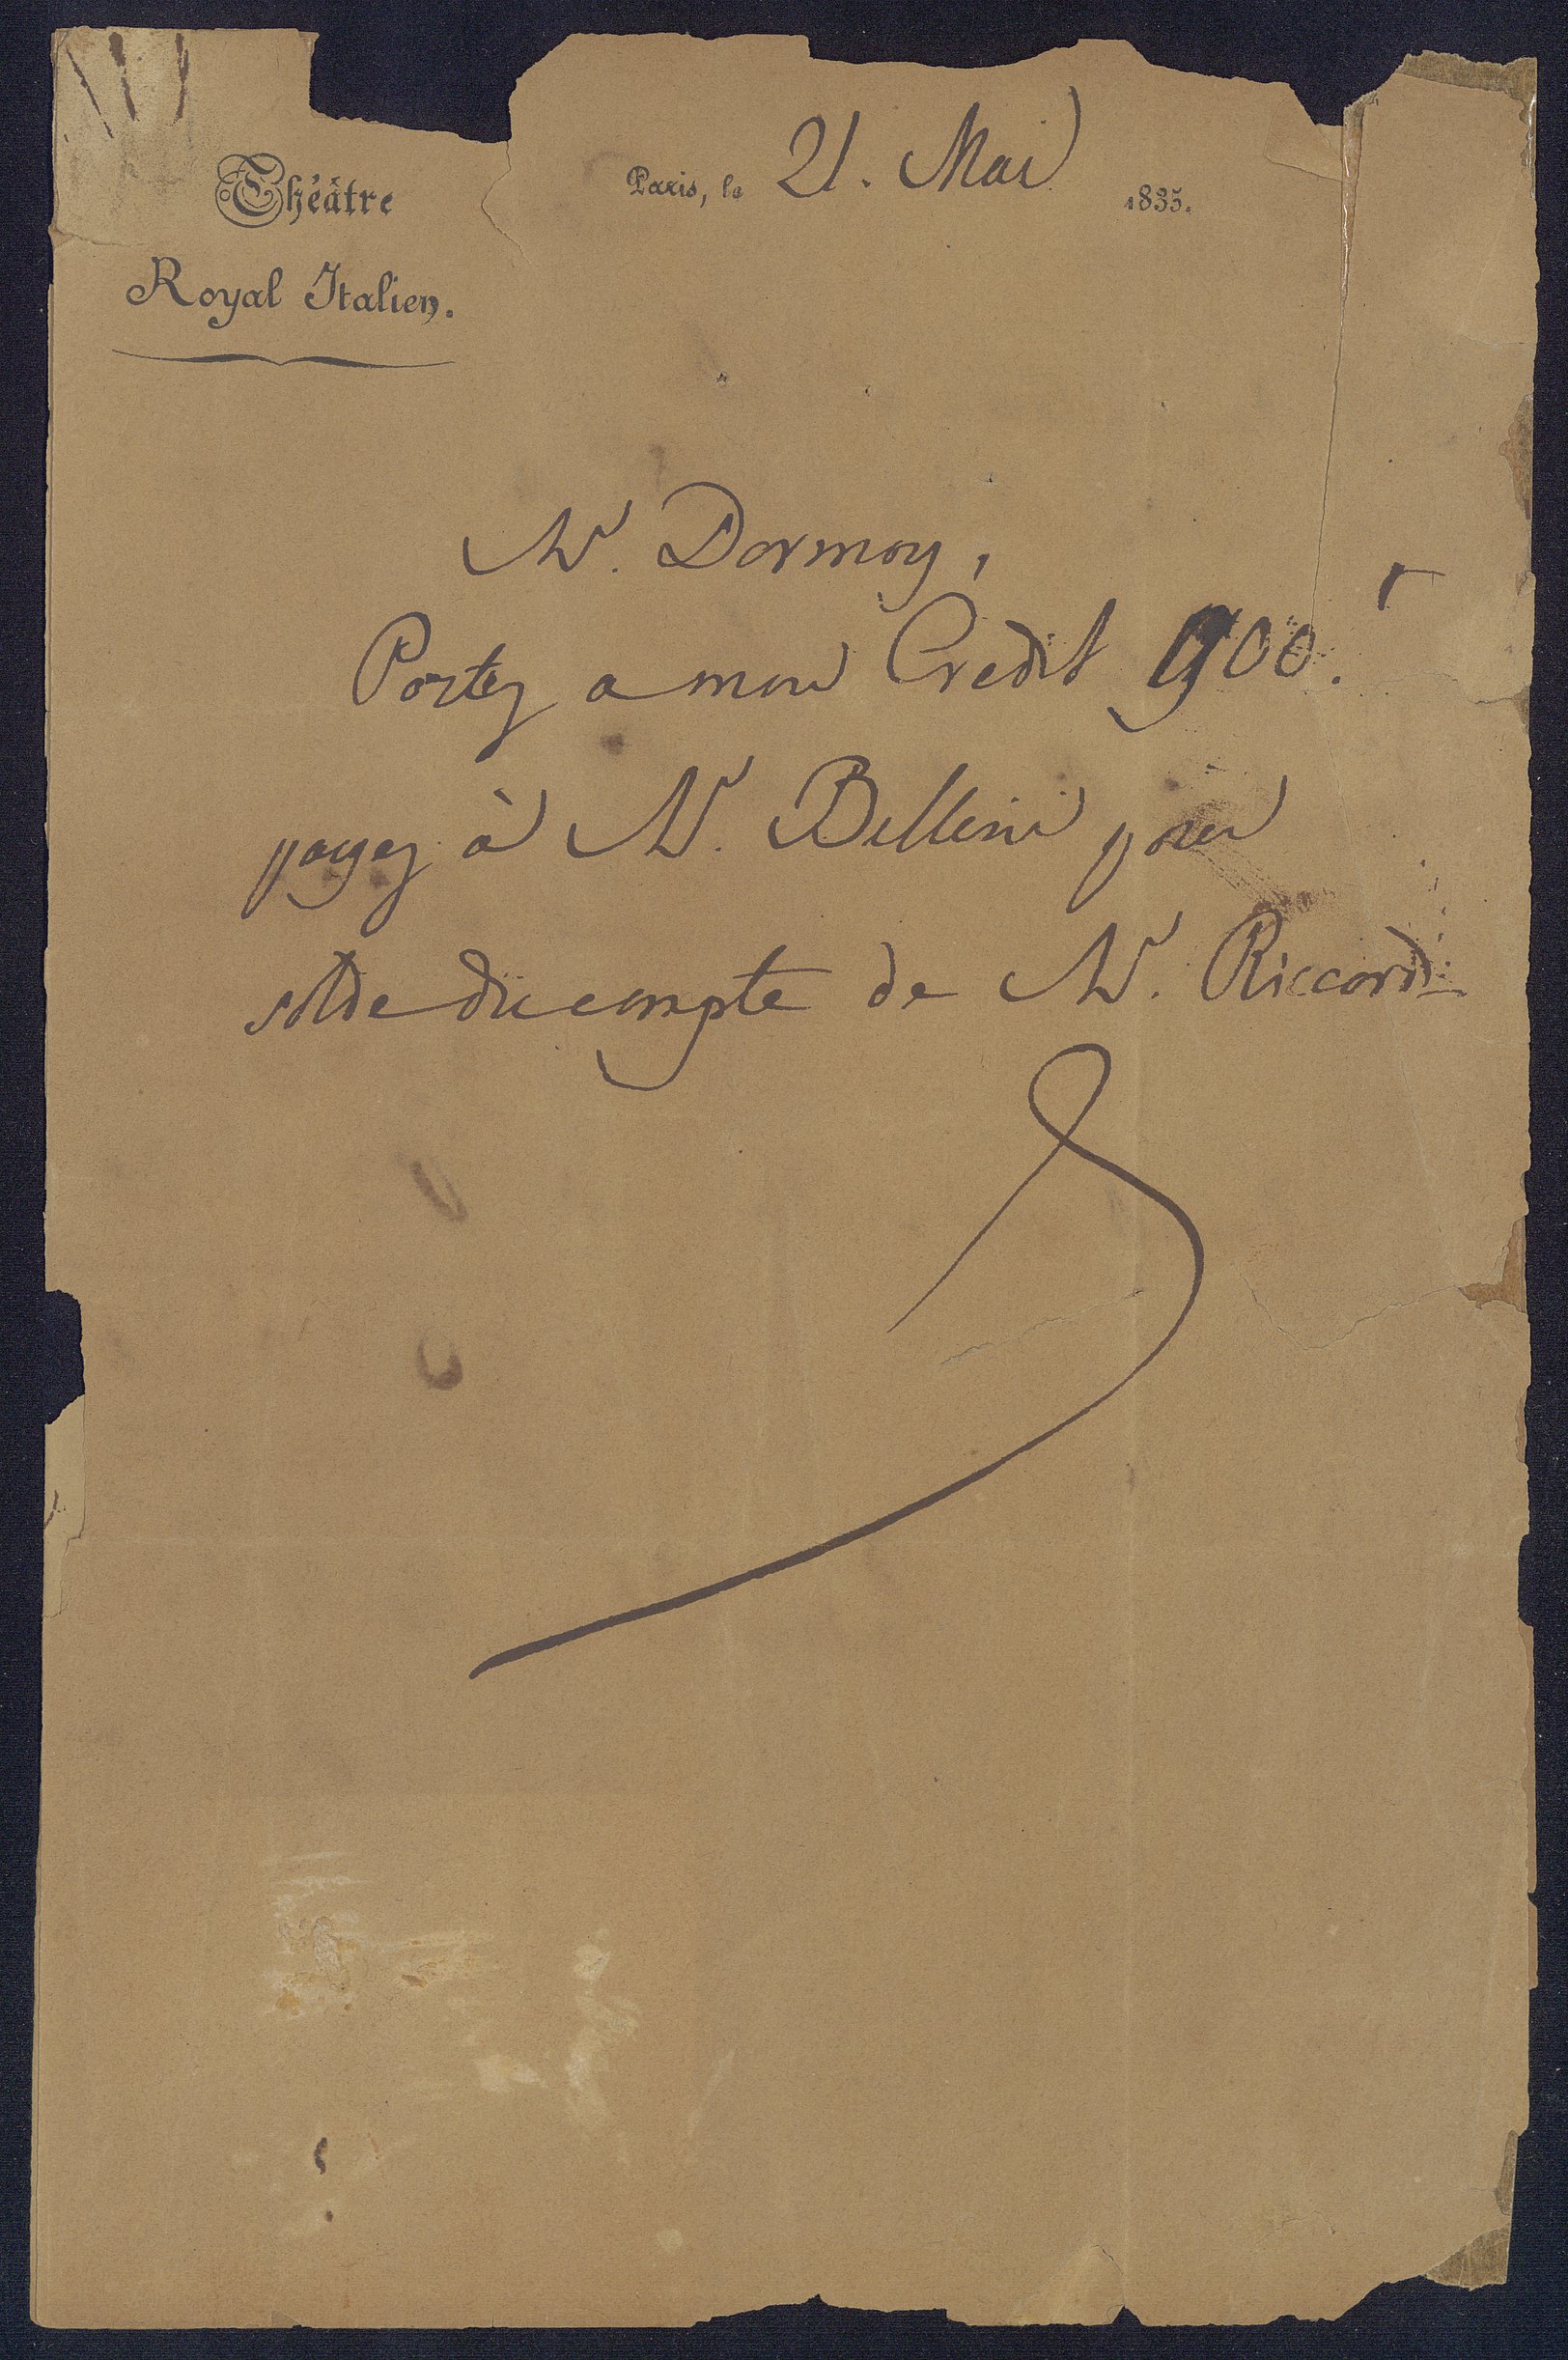 Théâtre
Royal Italien.
Paris, le 21. Mai 1835.
Mr. Dormoy,
Portez a mon Credit 900.f
payez à Mr. Bellini pour
solde du compte de Mr. Riccordi